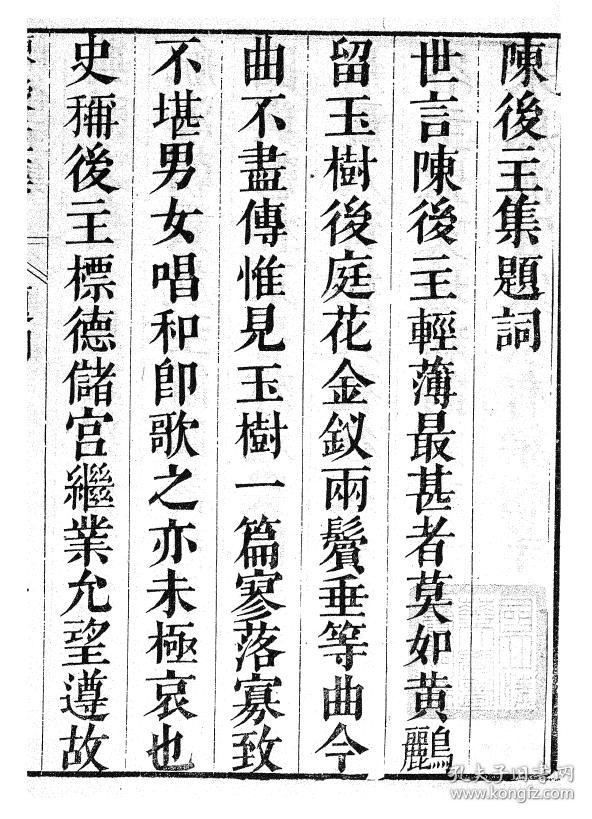 陳後主集題詞
世言陳後主輕薄最甚者莫如黃鸝
留玉樹後庭花金釵兩鬢垂等曲今
曲不盡傳惟見玉樹一篇寥落寡致
不堪男女唱和卽歌之亦未極哀也
史稱後主標德儲宮繼業允望遵故
孔夫子旧书网
www.kongfz.com